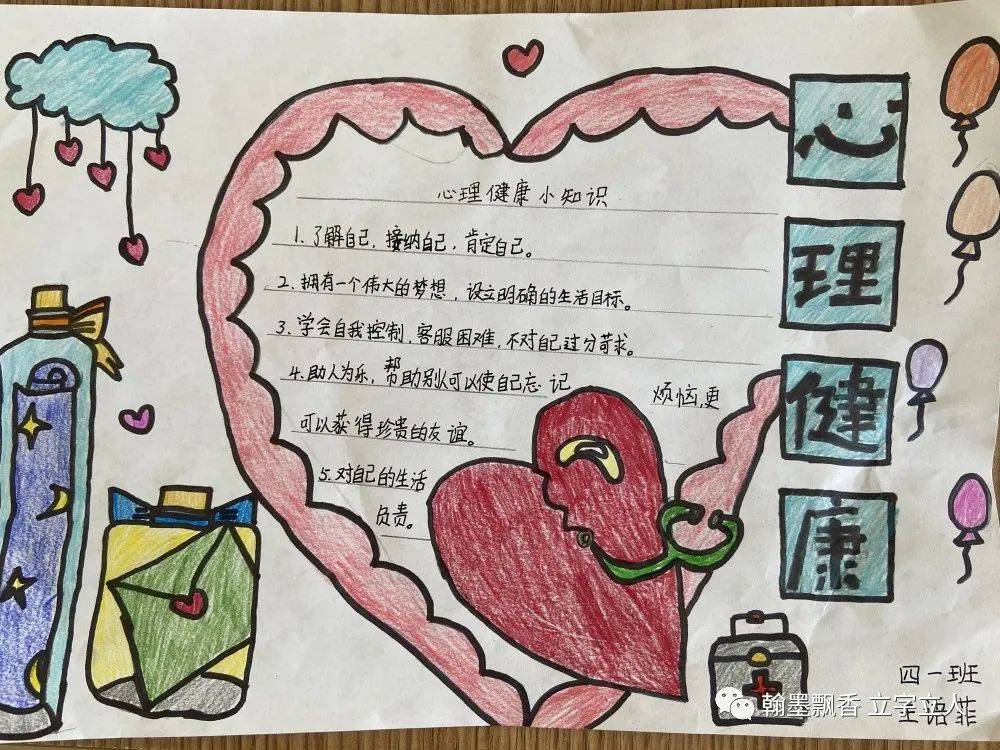 心理健康小知识
1.了解自己，接纳自己，肯定自己。
2、拥有一个伟大的梦想，设立明确的生活目标。
3、学会自我控制，客服困难，不对自己过分苛求。
4.助人为乐，帮助别人可以使自己忘记烦恼，更
可以获得珍贵的友谊。
5.对自己的生活
负责。
心
理
健
康
四一班
王语菲
翰墨飘香 立字立人